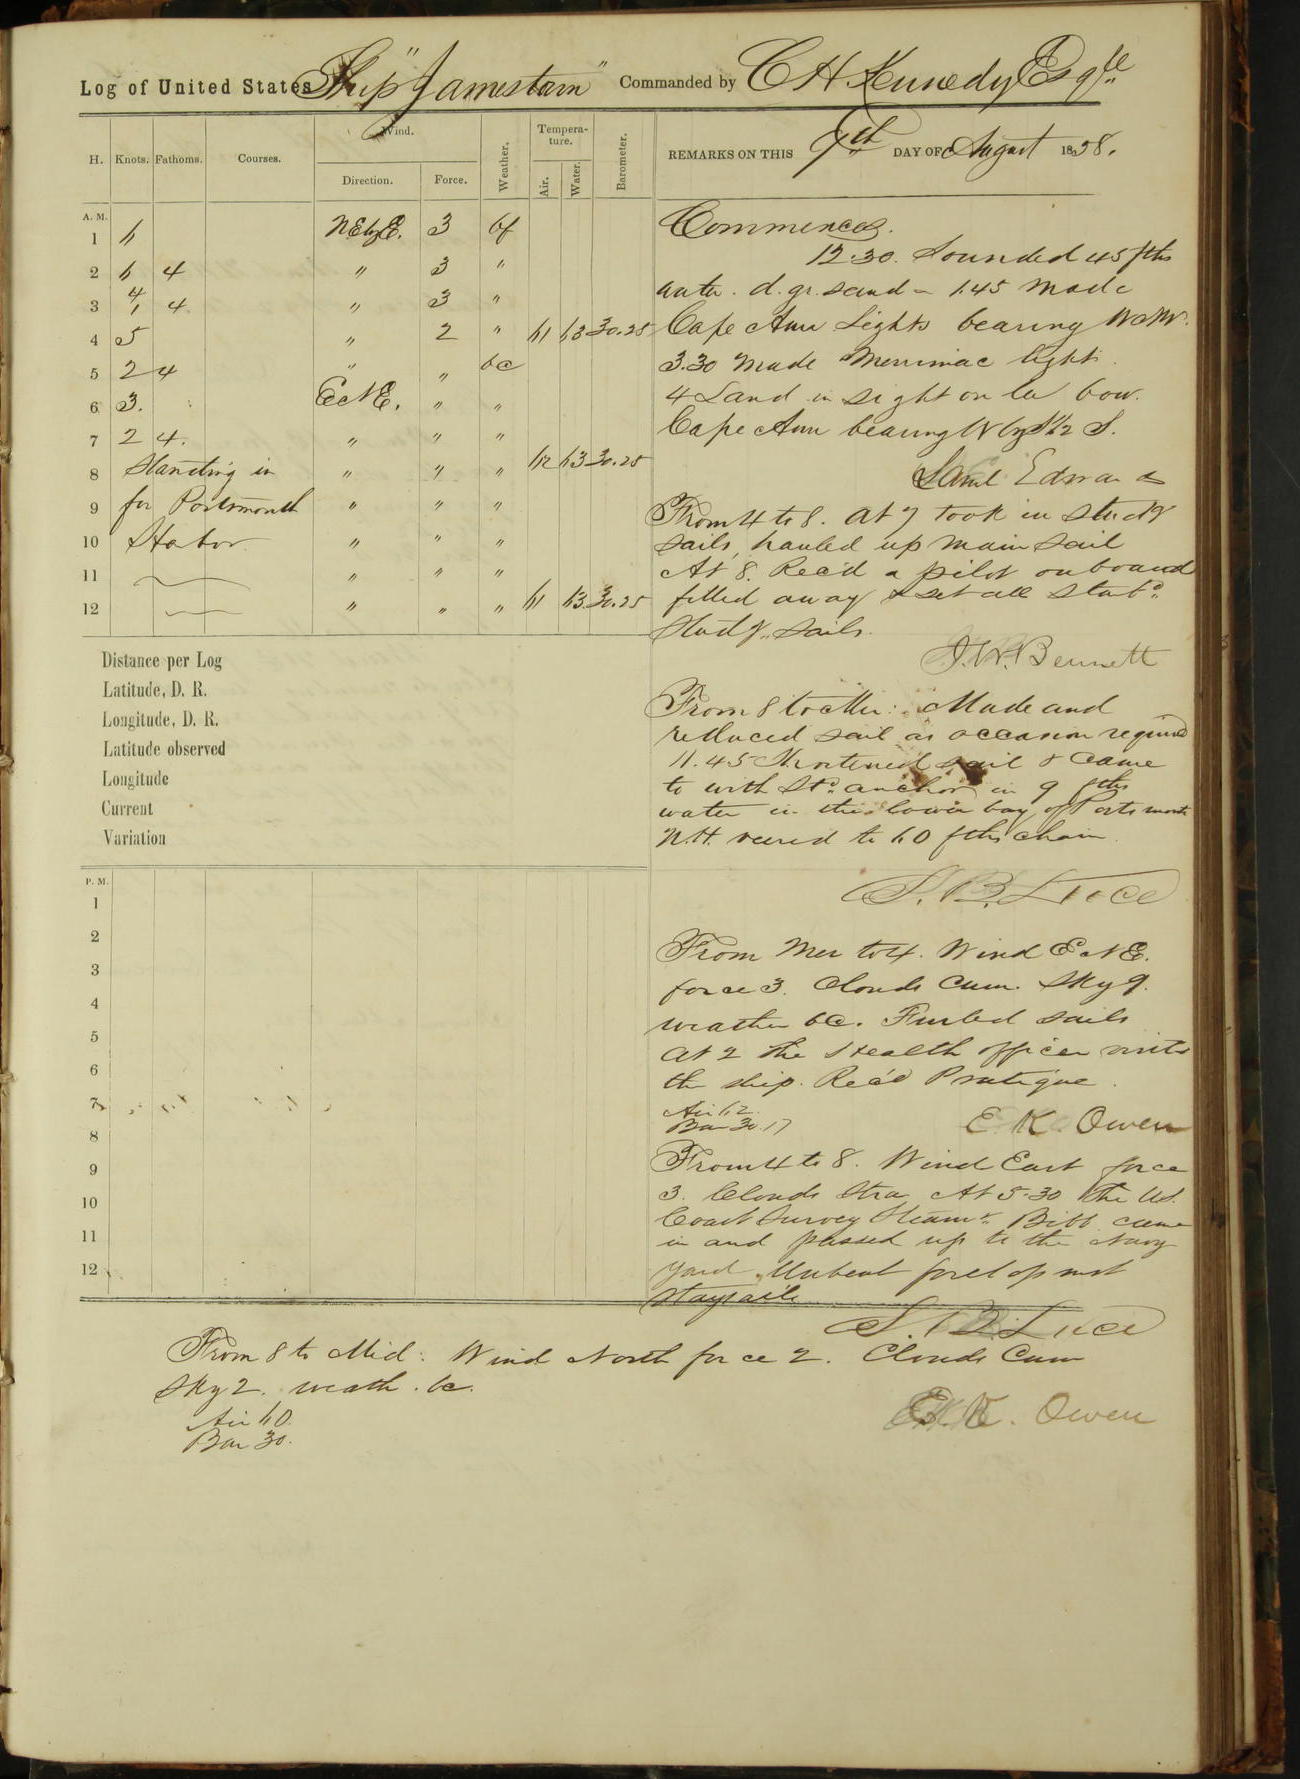 Log of United States Ship "Jamestown" Commanded by C H Kennedy Esqre
H. Knots. Fathoms. Courses. Wind. Direction. Force. Weather. Tempera-ture. Air. Water. Barometer.
REMARKS ON THIS 9th DAY OF August 1858.
A. M.
1 6 NEbyE. 3 bf
2 6 4 " 3 "
3 4 " 3 "
4 5 " 2 " 61 63 30.25
5 2 4 " " bc
6 3. ENE. " "
7 2 4. " " "
8 Standing in " " " 62 63 30.25
9 for Portsmouth " " "
10 Harbor " " "
11 " " "
12 " " " 61 63. 30.25
Commences.
12.30. Sounded 45 fths
water. d. gr. sand – 1.45 made
Cape Ann Lights bearing WNW.
3.30 made Merrimac light.
4 Land in sight on lee bow.
Cape Ann bearing W by S 1/2 S.
Saml Edwards
From 4 to 8. At 7 took in studg
sails, hauled up main sail
At 8. Rec'd a pilot onboard
filled away & set all Starbd.
Studg. sails.
J. W. Bennett
From 8 to Mer: Made and
reduced sail as occasion required
11.45 Shortened sail & came
to with Stbd. anchor in 9 fths
water in the lower bay of Portsmouth
N.H. veered to 60 fths chain
S. B. Luce
Distance per Log
Latitude, D. R.
Longitude, D. R.
Latitude observed
Longitude
Current
Variation
P. M.
1
2
3
4
5
6
7
8
9
10
11
12
From Mer to 4. Wind ENE.
force 3. Clouds Cum. Sky 9.
weather bc. Furled sails
At 2 the Health officer visits
the ship. Rec'd Pratique.
Air 62.
Bar 30.17
E. K. Owen
From 4 to 8. Wind East force
3. Clouds Stra. At 5.30 the U.S.
Coast Survey Steamr. Bibb came
in and passed up to the Navy
Yard. Unbent foretopmst
Staysails
S. B. Luce
From 8 to Mid: Wind North force 2. Clouds Cum
Sky 2. weath. bc.
Air 60.
Bar 30.
E. K. Owen